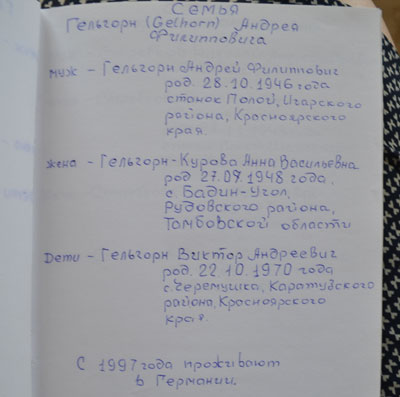 Семья
Гельгорн (Gelhorn) Андрея
Филипповича
муж – Гельгорн Андрей Филиппович
род. 28.10.1946 года
станок Полой, Игарского
района, Красноярского
края.
жена – Гельгорн-Курова Анна Васильевна
род 27.09.1948 года,
с. Бадин-Угол,
Рудовского района,
Томбовской области
Дети – Гельгорн Виктор Андреевич
род. 22.10.1970 года
с. Черемушка, Каратузского
района, Красноярского
края.
С 1997 года проживают
в Германии.